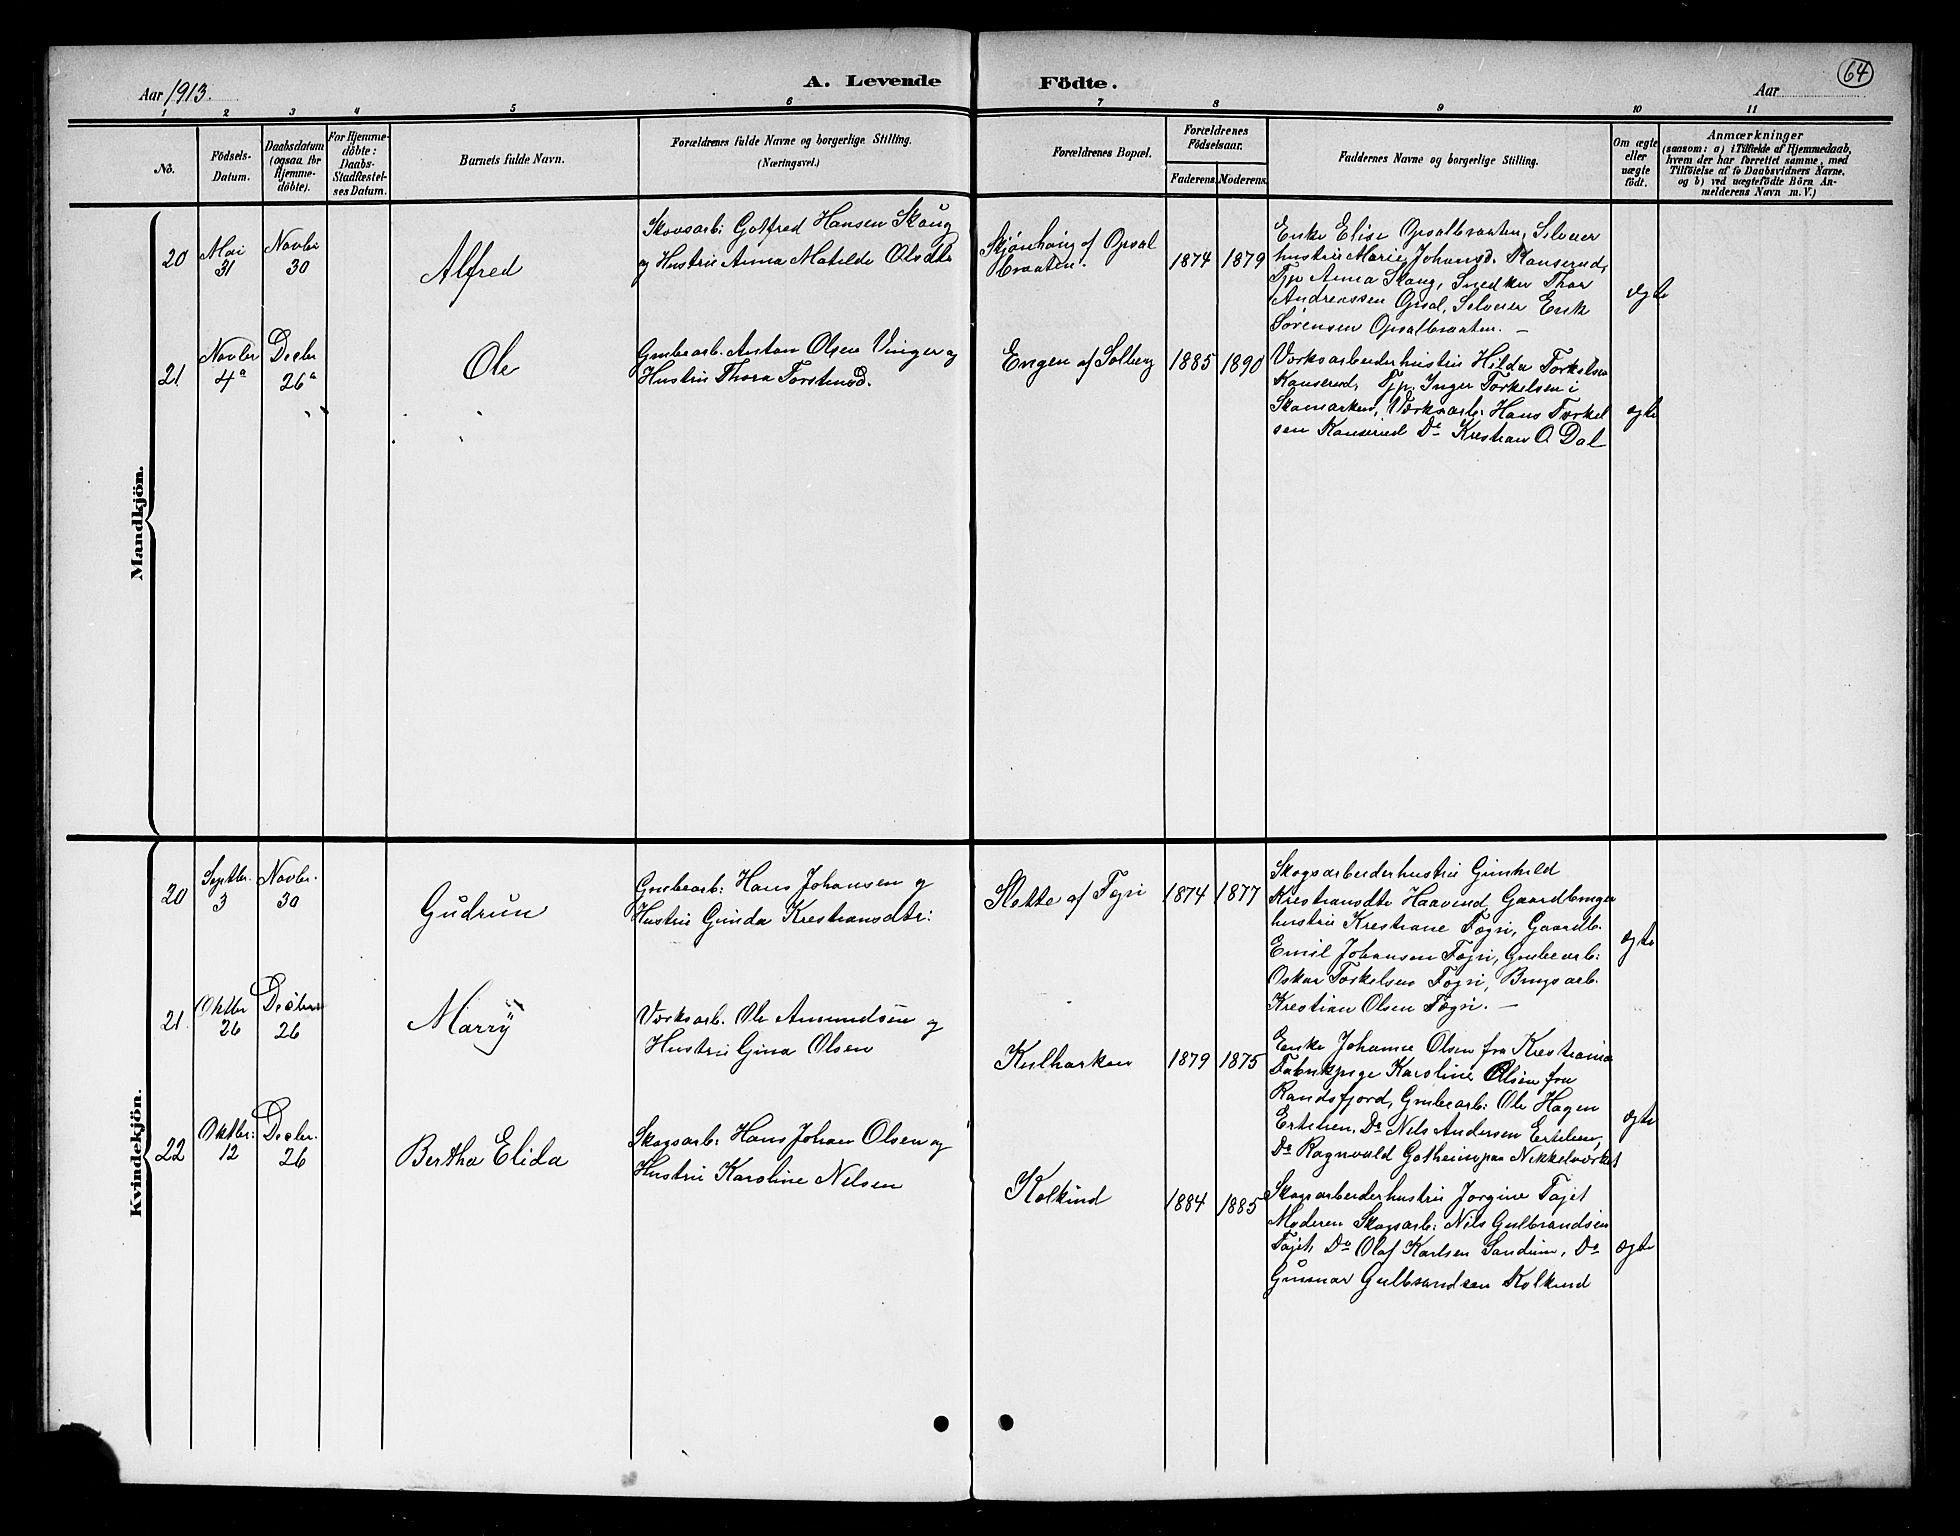 64
Aar 1913.
A. Levende Födte.
Aar
1 2 3 4 5 6 7 8 9 10 11
No.
Födsels-
Datum.
Daabsdatum
(ogsaa for
Hjemme-
döbte).
For Hjemme-
döbte:
Daabs-
Stadfæstel-
ses Datum.
Barnets fulde Navn.
Forældrenes fulde Navne og borgerlige Stilling.
(Næringsvei.)
Forældrenes Bopæl.
Forældrenes
Födselsaar.
Faderens.
Moderens.
Faddernes Navne og borgerlige Stilling.
Om ægte
eller
uægte
födt.
Anmærkninger
(saasom: a) i Tilfælde af Hjemmedaab,
hvem der har forrettet samme, med
Tilföielse af to Daabsvidners Navne,
og b) ved uægtefödte Börn An-
melderens Navn m. V.)
Mandkjön.
20
Mai
31
Novbr
30
Alfred
Skovsarb: Gotfred Hansen Skaug
og Hustru Anna Matilde Olsdtr
Skjønhaug af Opsal
braaten.
1874
1879
Enke Elise Opsalbraaten, Selveier
hustru Marie Johansd. Kanserud,
Tjp Anna Skaug, Snedker Thor
Andreassen Opsal, Selveier Enk
Sørensen Opsalbraaten. —
ægte
21
Novbr
4a
Decbr
26a
Ole
Grubearb. Anton Olsen Vinger og
Hustru Thora Torstensd.
Engen af Solberg
1885
1890
Værksarbeiderhustru Hilda Torkelsen
Kanserud, Tjp. Inger Torkelsen i
Skamarken, Værksarb: Hans Torkel
sen Kanserud Do Krestian O Dal
ægte
Kvindekjön.
20
Septbr.
3
Novbr.
30
Gudrun
Grubearb: Hans Johansen og
Hustru Gunda Krestiansdtr:
Slette af Fogri
1874
1877
Skogsarbeiderhustru Gunhild
Krestiansdtr Haavind, Gaardbruger
hustru Krestiane Fogri, Gaardb.
Emil Johansen Fogri, Grubearb:
Oskar Torkelsen Fogri, Brugsarb.
Krestian Olsen Fogri. —
ægte
21
Oktbr
26
Decbr
26
Marry
Værksarb. Ole Amundsen og
Hustru Gina Olsen
Kulharken
1879
1875
Enke Johanne Olsen fra Krestiania
Fabrikpige Karoline Olsen fra
Randsfjord, Grubearb: Ole Hagen
Ertelien, Do Nils Andersen Ertelien,
Do Ragnvald Gotheim paa Nikkelværket
ægte
22
Oktbr:
12
Decbr.
26
Bertha Elida
Skogsarb: Hans Johan Olsen og
Hustru Karoline Nilsen
Kolkind
1884
1885
Skogsarbeiderhustru Jorgine Fajet
Moderen Skogsarb: Nils Gulbrandsen
Fajet, Do Olaf Karlsen Sandum, Do
Gunnar Gulbrandsen Kolkind
ægte